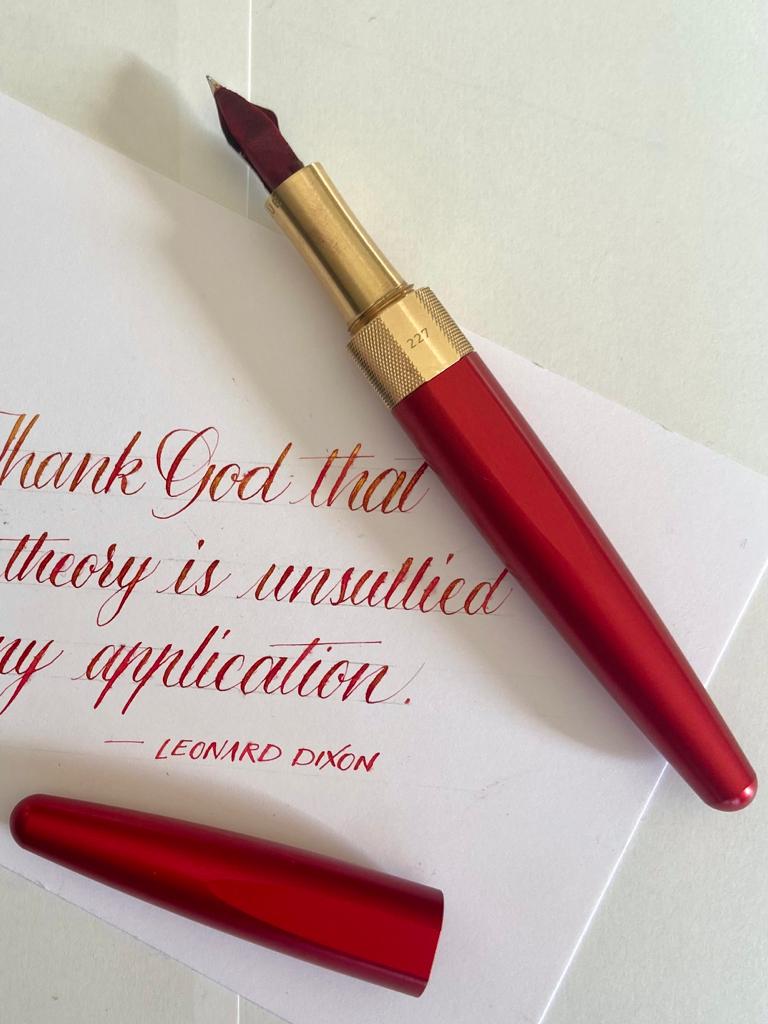 227
Thank God that
theory is unsullied
application.
— LEONARD DIXON